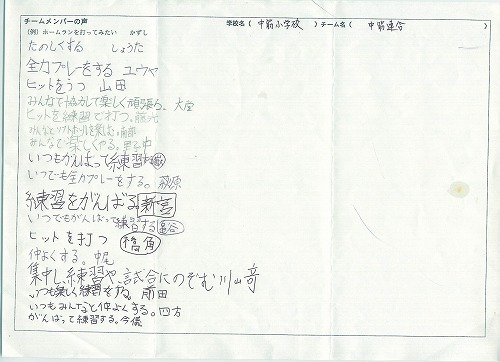 チームメンバーの声
学校名（中筋小学校）チーム名（中筋連合）
（例）ホームランを打ってみたい かずし
たのしくする しょうた
全力プレーをする ユウヤ
ヒットをうつ 山田
みんなで協力して楽しく頑張る。大空
ヒットを練習で打つ。藤光
みんなとソフトボールを楽しむ。南部
みんなで楽しくやる。里中
いつもがんばって練習
いつでも全力プレーをする。荻原
練習をがんばる 新宮
いつでもがんばって練習する 富谷
ヒットを打つ 橋角
仲よくする。中尾
集中し、練習や、試合にのぞむ 川崎
いつも楽しく練習をする。前田
いつもみんなと仲よくする。四方
がんばって練習する。今儀